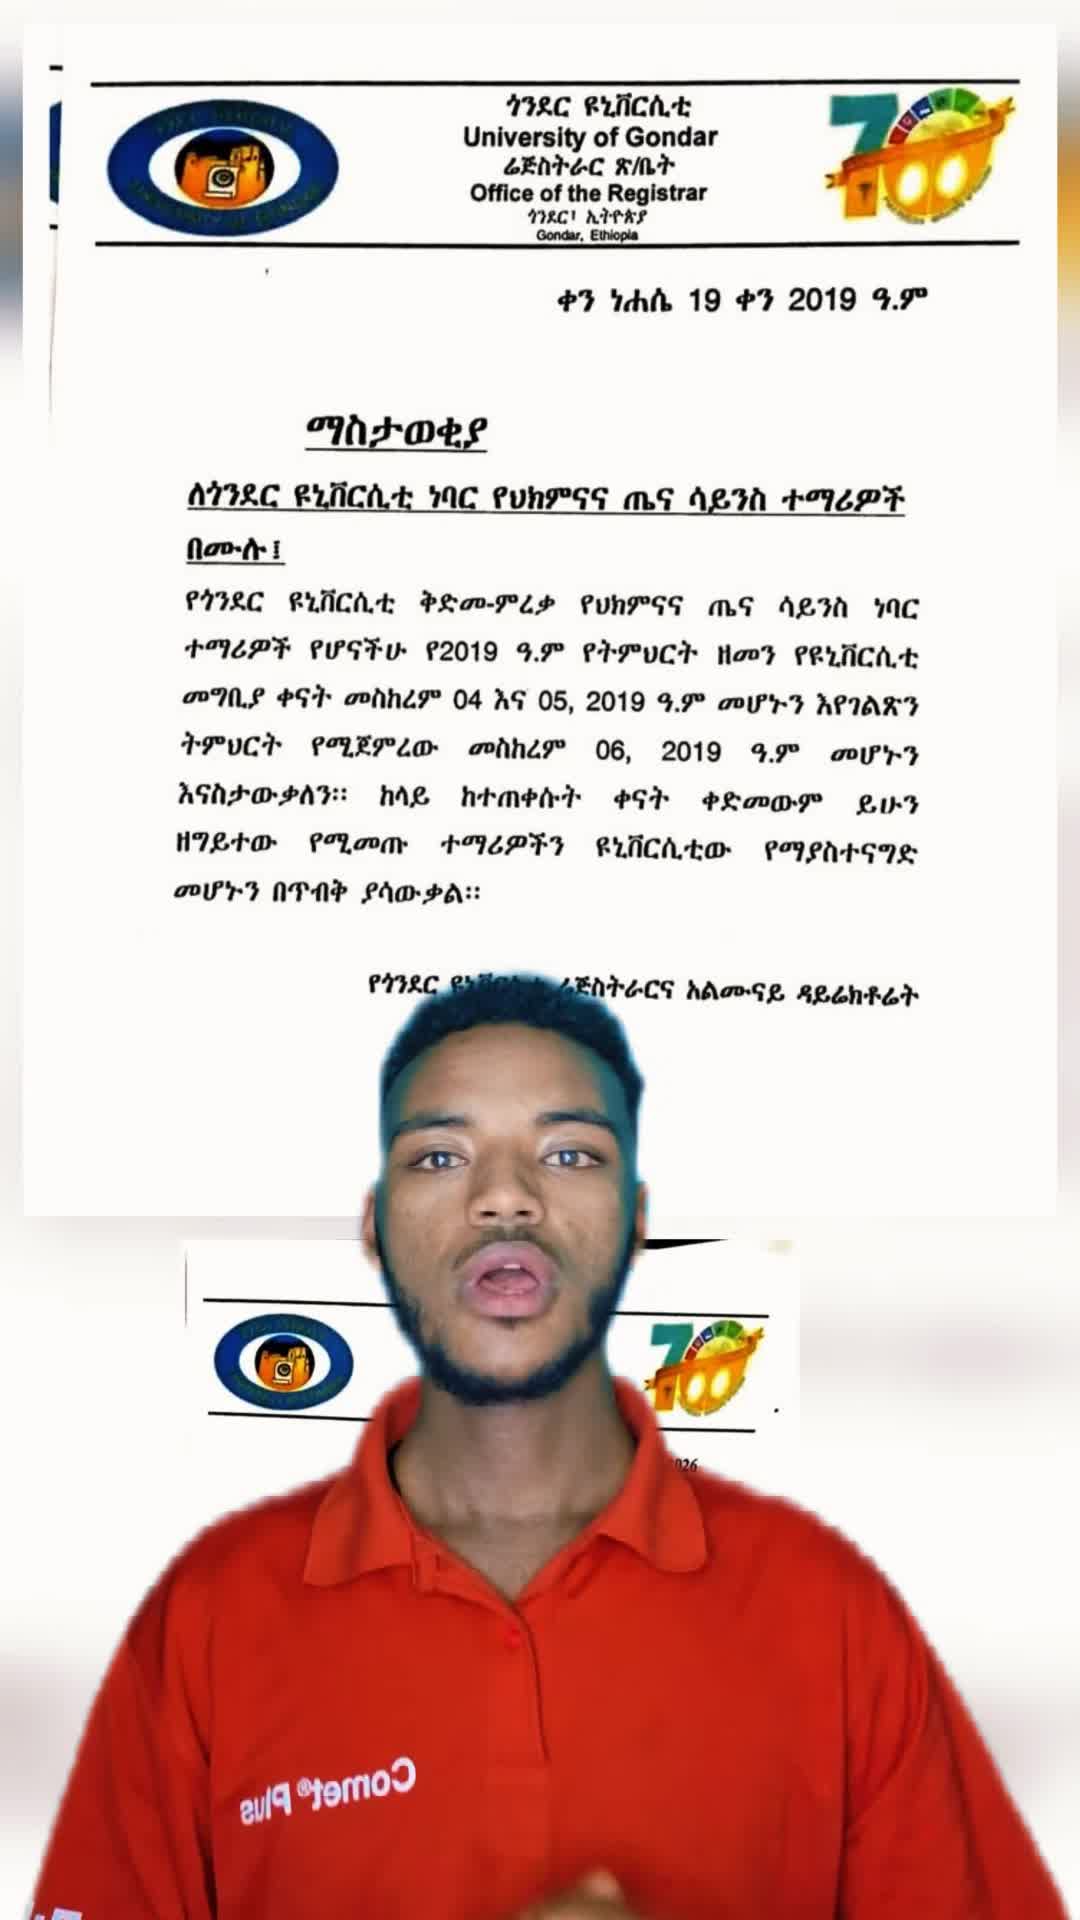 ጎንደር ዩኒቨርሲቲ
University of Gondar
ሬጅስትራር ጽ/ቤት
Office of the Registrar
ጎንደር፣ ኢትዮጵያ
Gondar, Ethiopia
ቀን ነሐሴ 19 ቀን 2019 ዓ.ም
ማስታወቂያ
ለጎንደር ዩኒቨርሲቲ ነባር የህክምናና ጤና ሳይንስ ተማሪዎች
በሙሉ፤
የጎንደር ዩኒቨርሲቲ ቅድመ-ምረቃ የህክምናና ጤና ሳይንስ ነባር
ተማሪዎች የሆናችሁ የ2019 ዓ.ም የትምህርት ዘመን የዩኒቨርሲቲ
መግቢያ ቀናት መስከረም 04 እና 05, 2019 ዓ.ም መሆኑን እየገለጽን
ትምህርት የሚጀምረው መስከረም 06, 2019 ዓ.ም መሆኑን
እናስታውቃለን፡፡ ከላይ ከተጠቀሱት ቀናት ቀድመውም ይሁን
ዘግይተው የሚመጡ ተማሪዎችን ዩኒቨርሲቲው የማያስተናግድ
መሆኑን በጥብቅ ያሳውቃል፡፡
የጎንደር ሬጅስትራርና አልሙናይ ዳይሬክቶሬት
70
70
026
Comet® Plus